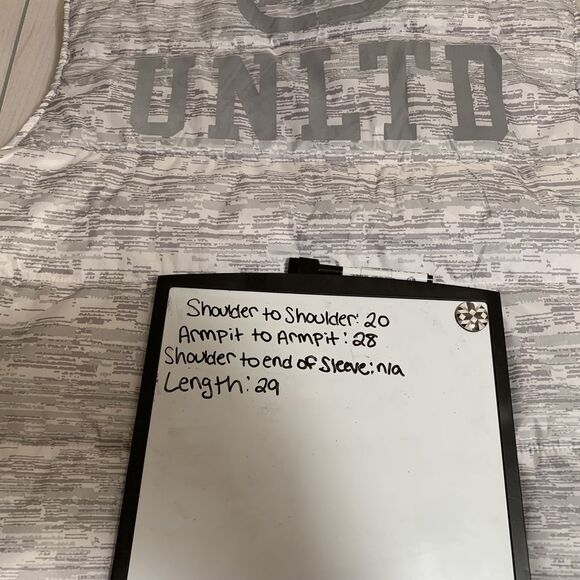 UNLTD
Shoulder to Shoulder: 20
Armpit to Armpit: 28
Shoulder to end of Sleeve: n/a
Length: 29